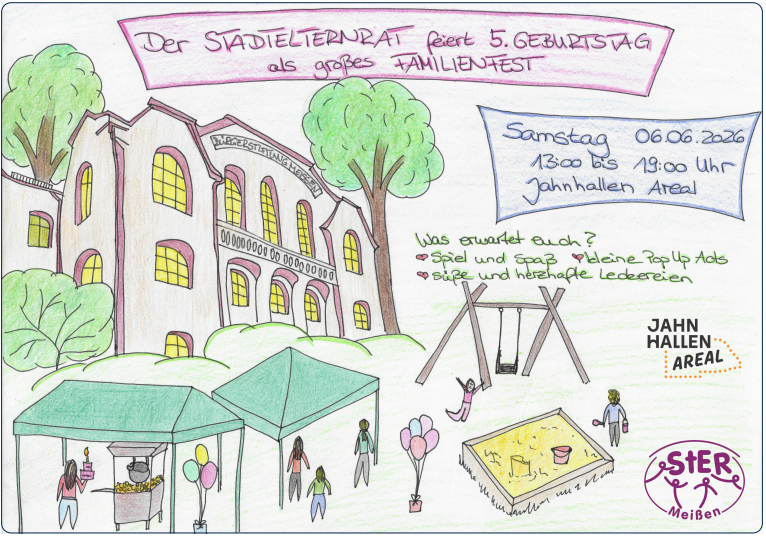 Der STADTELTERNRAT feiert 5. GEBURTSTAG
als großes FAMILIENFEST
Samstag 06.06.2026
13:00 bis 19:00 Uhr
Jahnhallen Areal
BÜRGERSTIFTUNG MEISSEN
Was erwartet euch?
Spiel und Spaß kleine Pop Up Acts
süße und herzhafte Leckereien
JAHN
HALLEN
AREAL
StER
Meißen